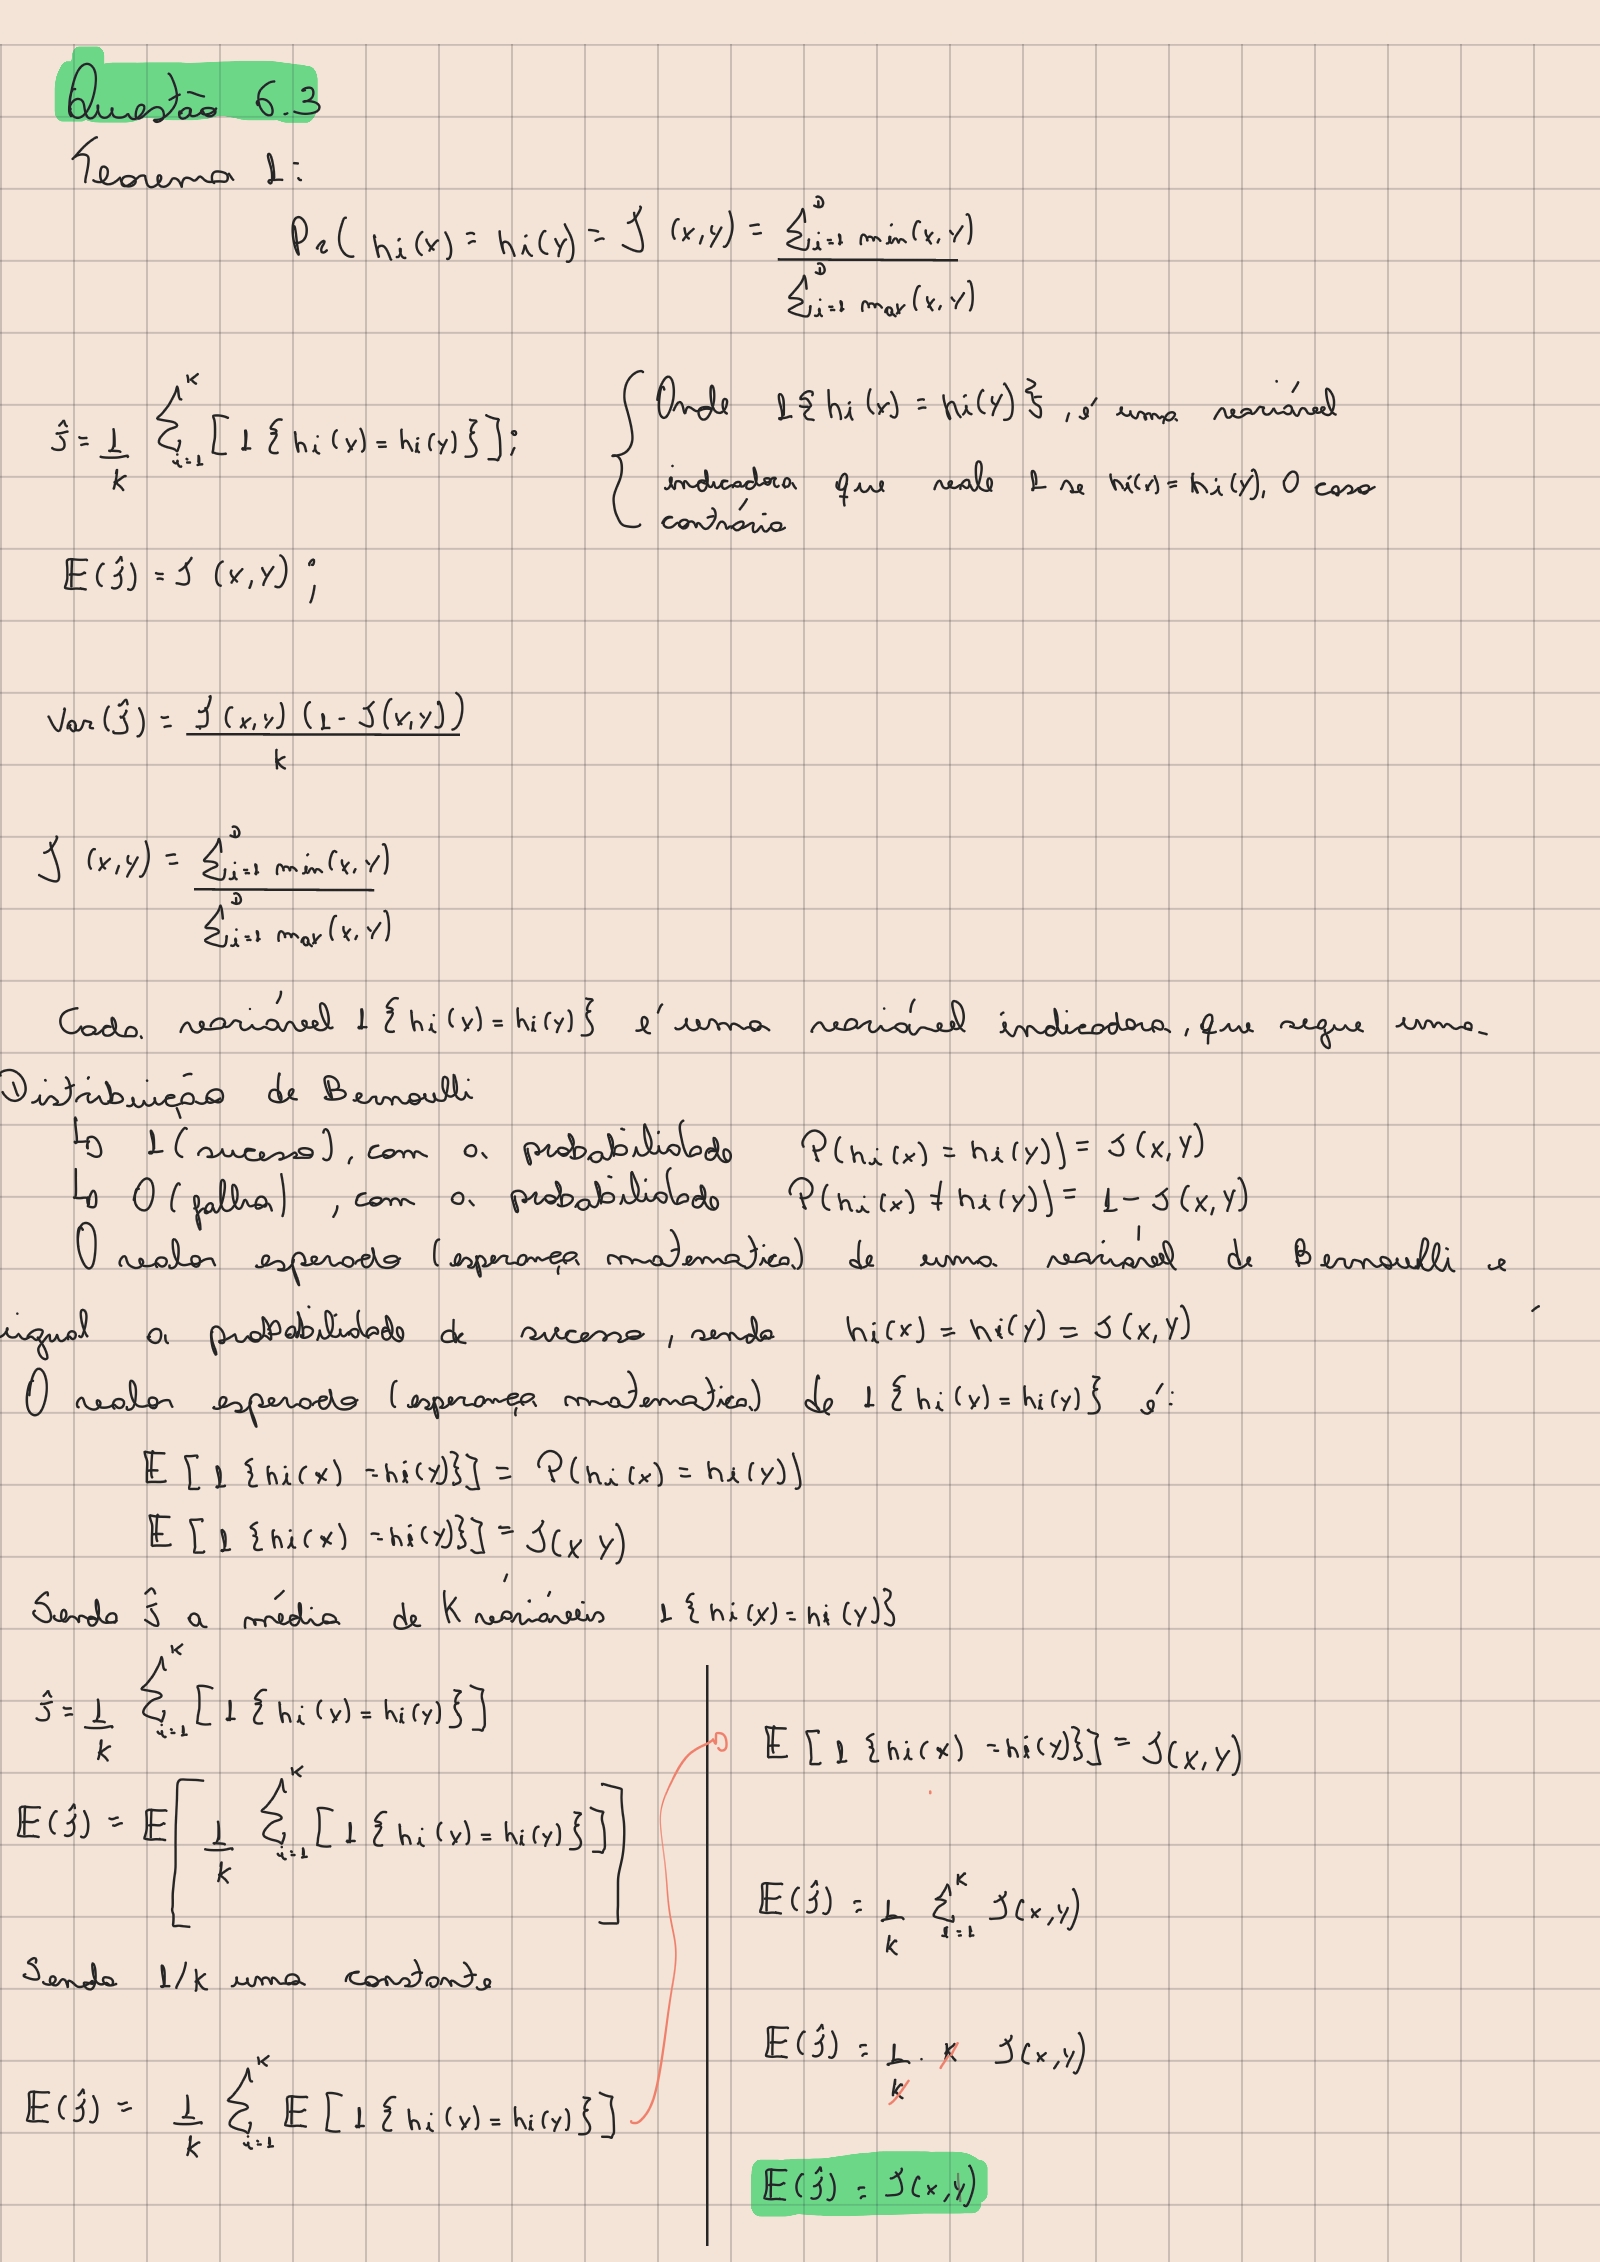 Questão 6.3
Teorema 1:
Pr( hi(x) = hi(y) = J (x,y) = Σ_{i=1}^{D} min(x,y) / Σ_{i=1}^{D} max(x,y)
Ĵ = 1/k Σ_{i=1}^{K} [ 1 { hi(x) = hi(y) } ] ;
Onde 1{ hi(x) = hi(y) } , é uma variável
indicadora que vale 1 se hi(x) = hi(y), 0 caso
contrário
𝔼(Ĵ) = J (x,y) ;
Var(Ĵ) = J (x,y) (1 - J(x,y)) / k
J (x,y) = Σ_{i=1}^{D} min(x,y) / Σ_{i=1}^{D} max(x,y)
Cada variável 1 { hi(x) = hi(y) } é uma variável indicadora, que segue uma
Distribuição de Bernoulli
↳ 1 (sucesso), com a probabilidade P(hi(x) = hi(y)) = J(x,y)
↳ 0 (falha) , com a probabilidade P(hi(x) ≠ hi(y)) = 1 - J(x,y)
O valor esperado (esperança matematica) de uma variável de Bernoulli é
igual a probabilidade de sucesso, sendo hi(x) = hi(y) = J(x,y)
O valor esperado (esperança matematica) de 1 { hi(x) = hi(y) } é:
𝔼 [ 1 {hi(x) = hi(y)}] = P(hi(x) = hi(y))
𝔼 [ 1 {hi(x) = hi(y)}] = J(x y)
Sendo Ĵ a média de K variáveis 1 { hi(x) = hi(y) }
Ĵ = 1/k Σ_{i=1}^{K} [ 1 { hi(x) = hi(y) } ]
𝔼(Ĵ) = 𝔼 [ 1/k Σ_{i=1}^{K} [ 1 { hi(x) = hi(y) } ] ]
Sendo 1/k uma constante
𝔼(Ĵ) = 1/k Σ_{i=1}^{K} 𝔼 [ 1 { hi(x) = hi(y) } ]
𝔼 [ 1 {hi(x) = hi(y)}] = J(x,y)
𝔼(Ĵ) = 1/k Σ_{i=1}^{K} J(x,y)
𝔼(Ĵ) = 1/k . k J(x,y)
𝔼(Ĵ) = J(x,y)